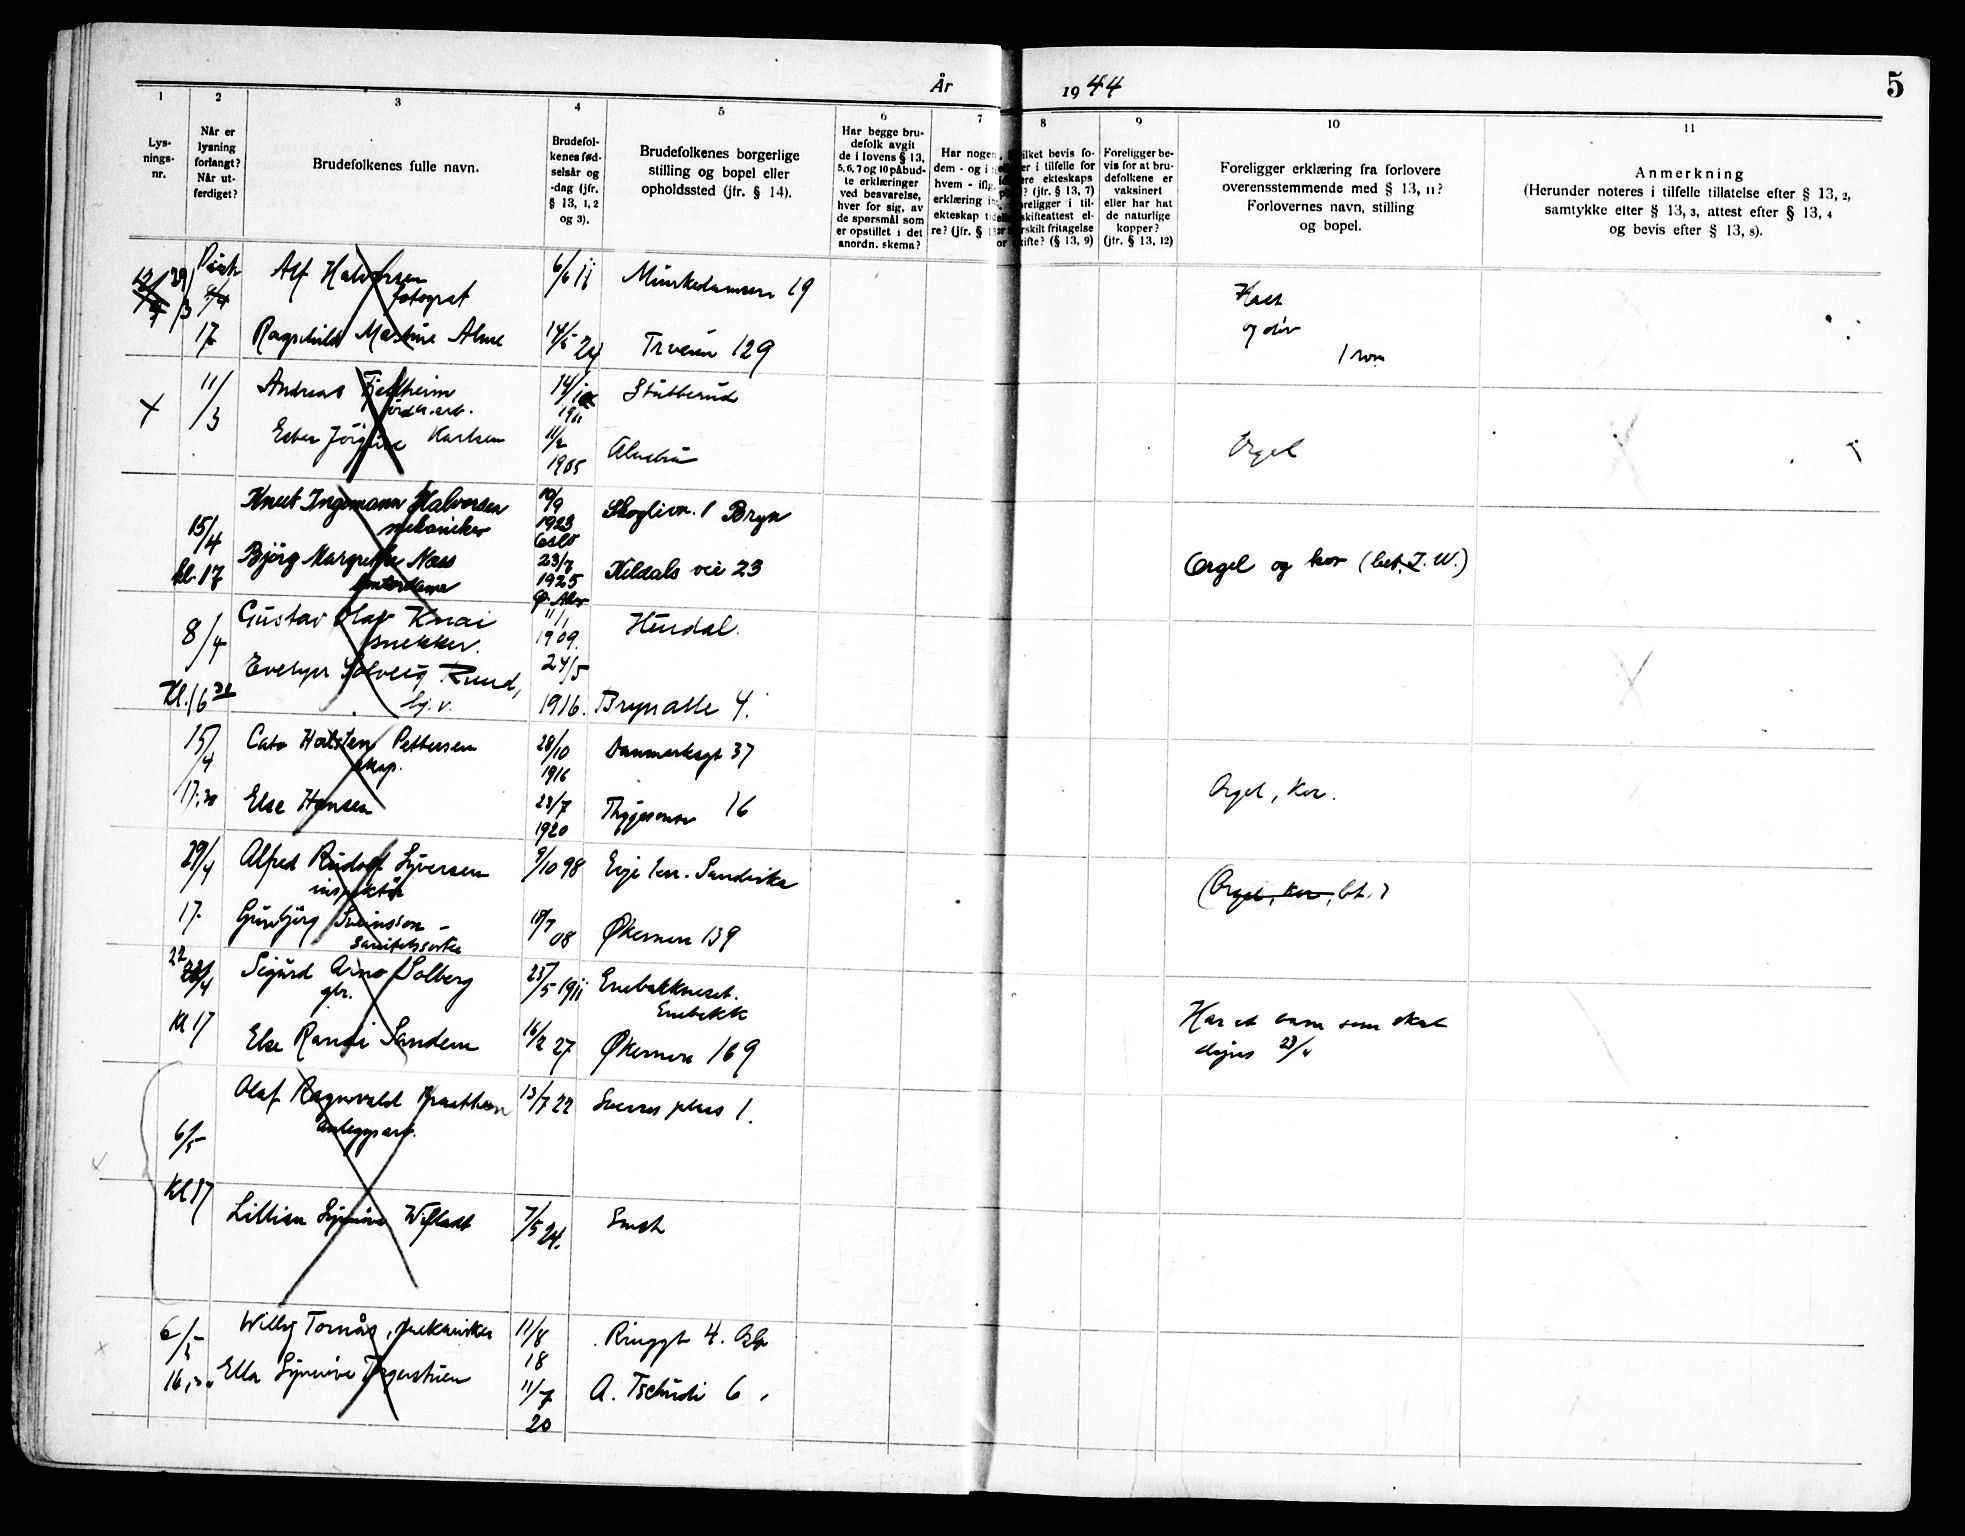 År 1944
5
1
2
3
4
5
6
7
8
9
10
11
Lys-
nings-
nr.
Når er
lysning
forlangt?
Når ut-
ferdiget?
Brudefolkenes fulle navn.
Brudefol-
kenes fød-
selsår og
-dag (jfr.
§ 13, 1, 2
og 3).
Brudefolkenes borgerlige
stilling og bopel eller
opholdssted (jfr. § 14).
Har begge bru-
defolk avgit
de i lovens § 13,
5, 6, 7 og 10 påbud-
te erklæringer
ved besvarelse,
hver for sig, av
de spørsmål som
er opstillet i det
anordn. skema?
Har nogen
dem - og i
hvem - ifig.
erklæring
ekteskap
re? (jfr. §
ilket bevis fo-
er i tilfelle for
ekteskaps
? (jfr. § 13, 7)
i til-
skifteattest el-
fritagelse
(§ 13, 9)
Foreligger be-
vis for at bru-
defolkene er
vaksinert
eller har hat
de naturlige
kopper?
(jfr. § 13, 12)
Foreligger erklæring fra forlovere
overensstemmende med § 13, 11?
Forlovernes navn, stilling
og bopel.
Anmerkning
(Herunder noteres i tilfelle tillatelse efter § 13, 2,
samtykke efter § 13, 3, attest efter § 13, 4
og bevis efter § 13, 8).
29/3
Alf Halvorsen
fotograf
6/6 11
Munkedamsvn 19
17
Ragnhild Alme
14/5 24
Trvein 129
og div
1 rom
11/3
Andreas Fjellheim
14/
Stubberud
Ester Karlsen
11/2
1905
Orgel
Knut Ingemann Halvorsen
mekaniker
10/9
1923
Oslo
Skoglivn. 1 Bryn
15/4
kl. 17
Bjørg Margrethe Næss
kontordame
23/7
1925
Kildals vei 23
Orgel og kor (bet. I. W.)
8/4
Gustav Olav Knai
snekker.
11/1
1909.
Hendal.
Kl. 16 30
Evelyn Solveig Ruud,
24/5
1916.
Brynalle 4.
15/4
Cato Halsten Pettersen
28/10
1916
Danmarksgt 37
17.30
Else Hansen
23/7
1920
16
Orgel, kor.
29/4
Alfred Rudolf Syversen
inspektør
9/10 98
Evje terr. Sandvika
17.
Gunbjørg Svinsson -
08
Økernvn 139
(Orgel, kor, bt.)
22
Sigurd Arno Solberg
gbr.
25/5 1911
Enebakkneset.
Enebakk
Kl 17
Else Randi Sandem
16/2 27
Økernvn 169
Har et barn som skal
døpes 23/4
Olaf Ragnvald Braathen
anleggsarb.
13/7 22
Sverres plass 1.
6/5
Kl 17
Lillian Synnøve
7/5 24.
Smst
6/5
Willy Tornås, mekaniker
11/8
18
Ringgt 4. Oslo
16.30
Ella Synnøve
11/7
20
A. Tschudi 6.